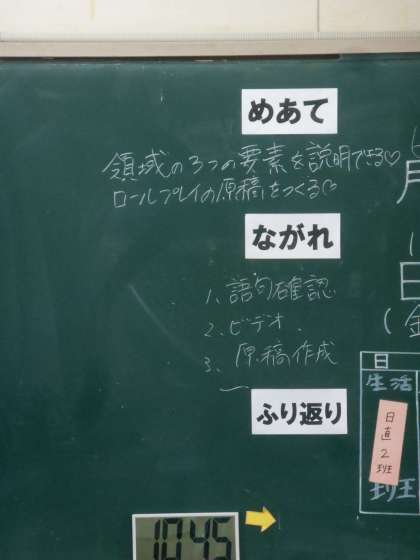 めあて
領域の3つの要素を説明できる♡
ロールプレイの原稿をつくる♡
ながれ
1. 語句確認
2. ビデオ.
3. 原稿作成
ふり返り
月
日
(金
日
生活
日直2班
班
10:45